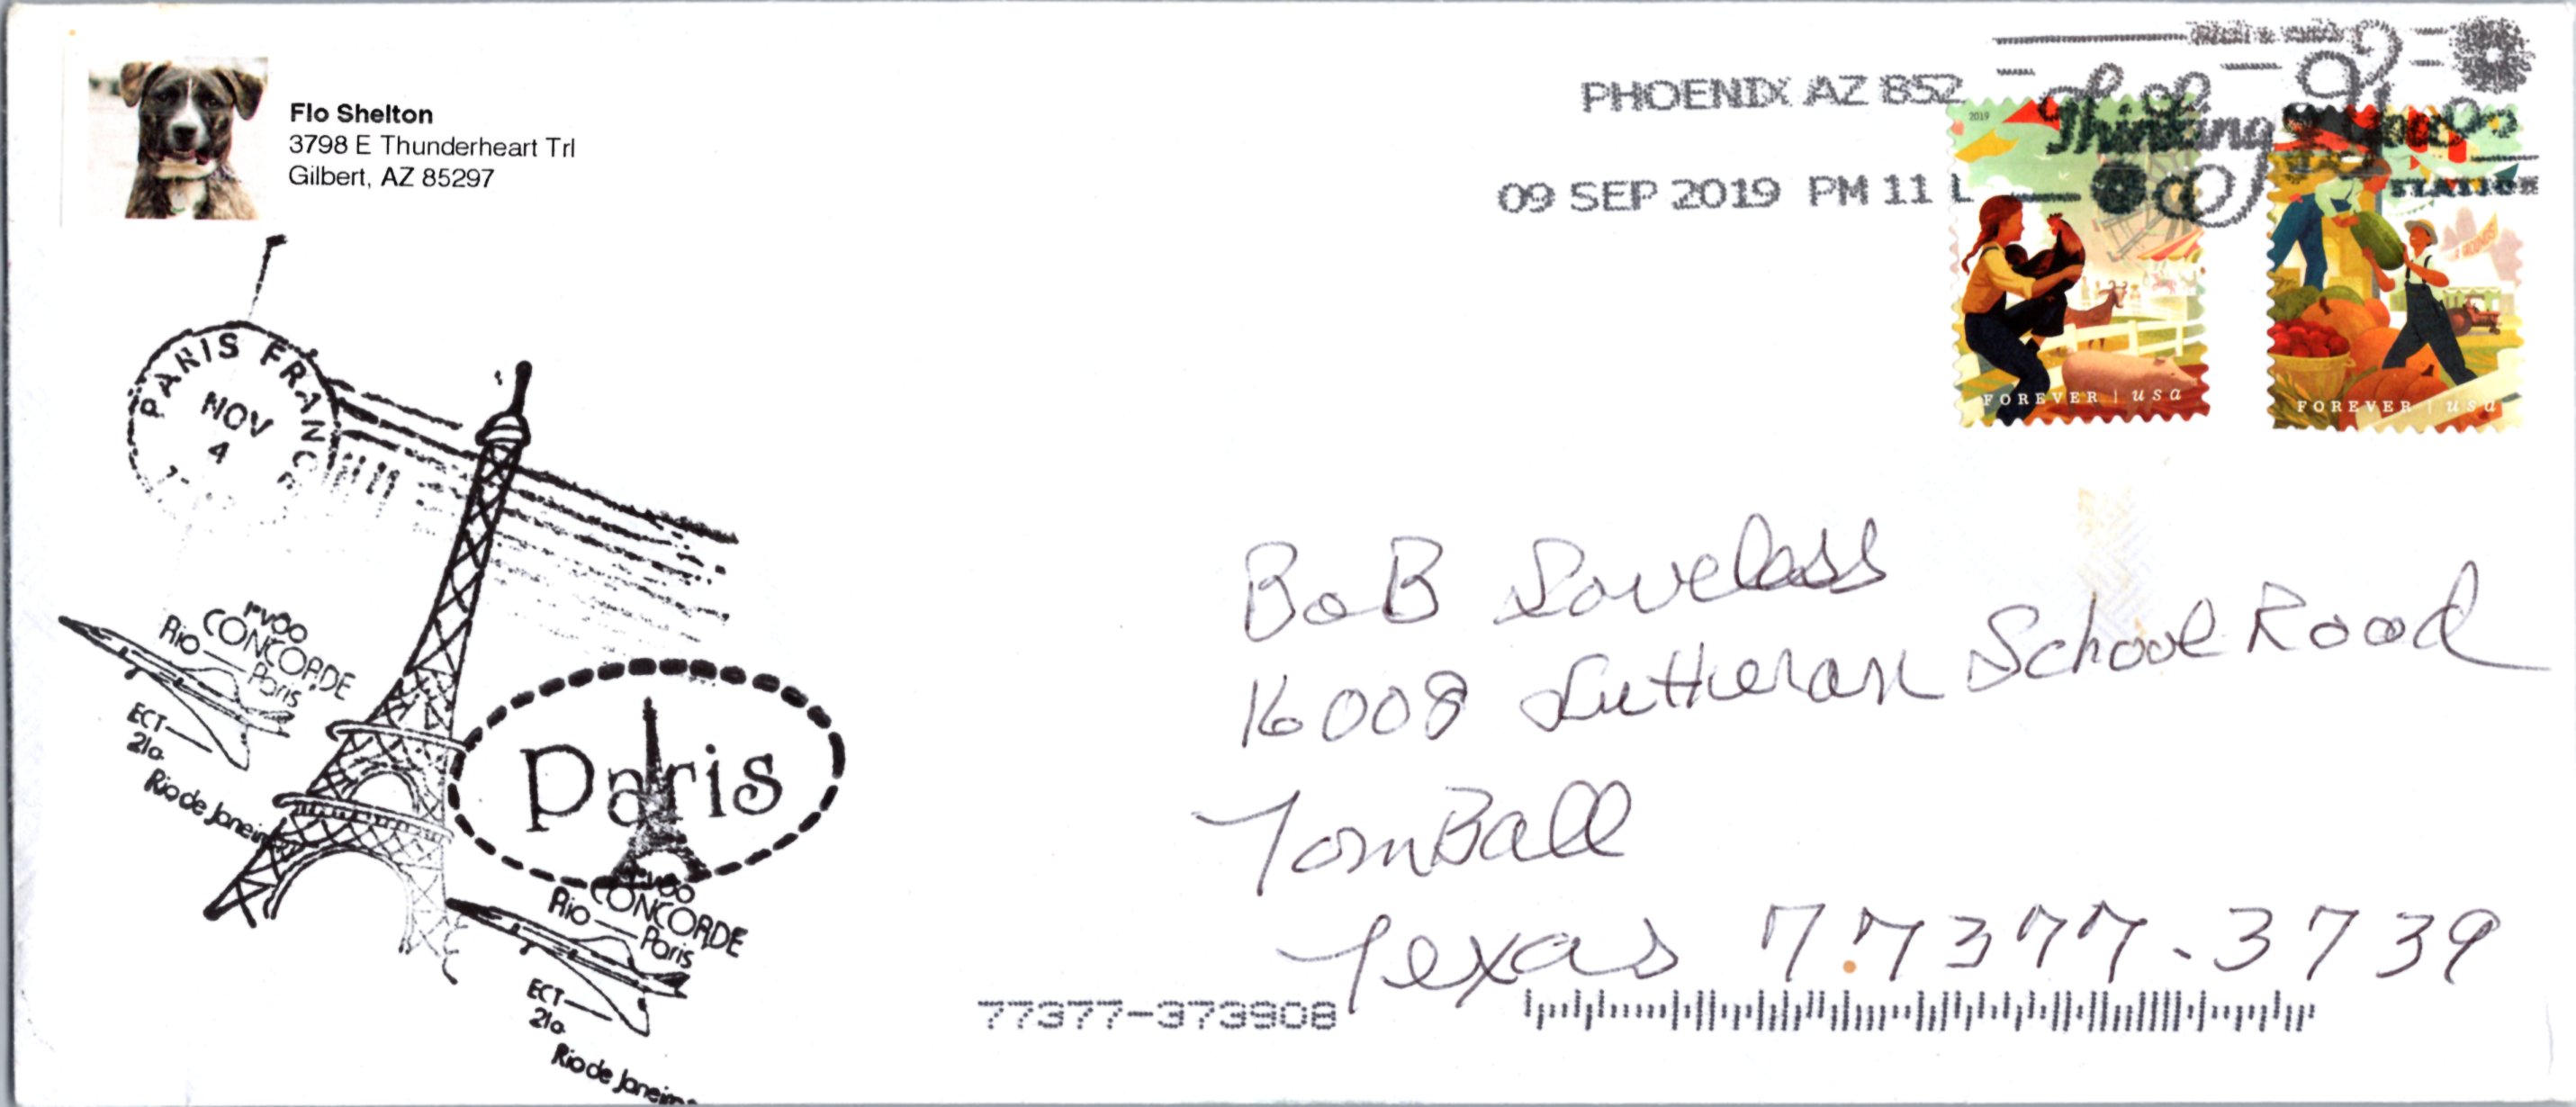 Flo Shelton
3798 E Thunderheart Trl
Gilbert, AZ 85297
PHOENIX AZ 852
09 SEP 2019 PM 11 L
Thinking of you
2019
FOREVER | usa
FOREVER | usa
PARIS FRANCE
NOV
4
CONCORDE
Rio
Paris
ECT
21a
Rio de Janeiro
Paris
CONCORDE
Rio
Paris
ECT
21a
Rio de Janeiro
BoB Loveless
16008 Lutheran School Road
TomBall
Texas 77377-3739
77377-373908